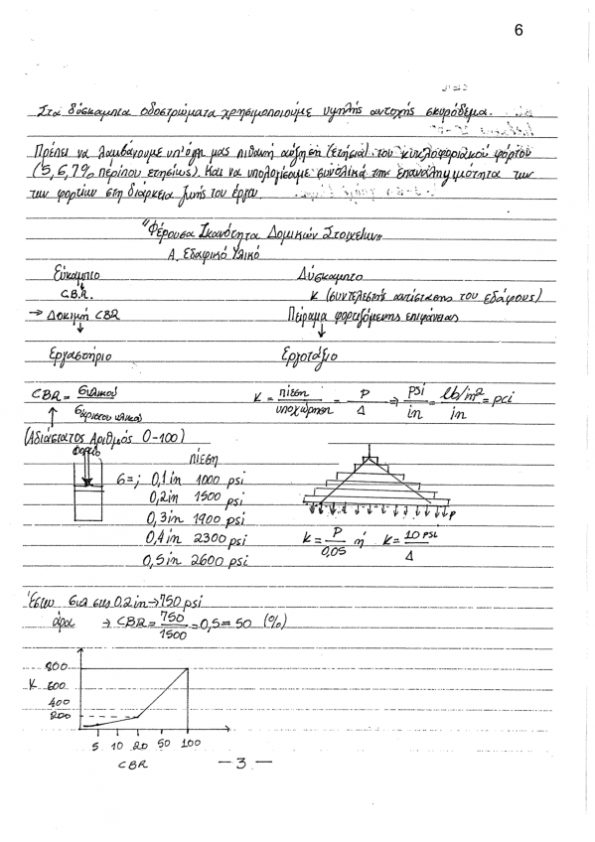 6
Στα δύσκαμπτα οδοστρώματα χρησιμοποιούμε υψηλής αντοχής σκυρόδεμα.
Πρέπει να λαμβάνουμε υπ'όψη μας πιθανή αύξηση (ετήσια) του κυκλοφοριακού φόρτου
(5,6,7% περίπου ετησίως). Και να υπολογίσουμε συνολικά την επαναληψιμότητα των
των φορτίων στη διάρκεια ζωής του έργου.
"Φέρουσα Ικανότητα Δομικών Στοιχείων"
Α. Εδαφικό Υλικό
Εύκαμπτο Δύσκαμπτο
C.B.R. K (συντελεστής αντίστασης του εδάφους)
→ Δοκιμή CBR Πείραμα φορτιζόμενης επιφάνειας
Εργαστήριο Εργοτάξιο
CBR = συλικού K = πίεση/υποχώρηση = P/Δ ⇒ psi/in = lb/in²/in = pci
(Αδιάστατος Αριθμός 0-100)
πίεση
σ=; 0,1in 1000 psi
0,2in 1500 psi
0,3in 1900 psi P
0,4in 2300 psi K = P/0,05 ή K = 10 psi/Δ
0,5in 2600 psi
Έστω για εις 0.2in → 750 psi
άρα → CBR = 750/1500 = 0,5 = 50 (%)
800
K 600
400
200
5 10 20 50 100
CBR
-3-